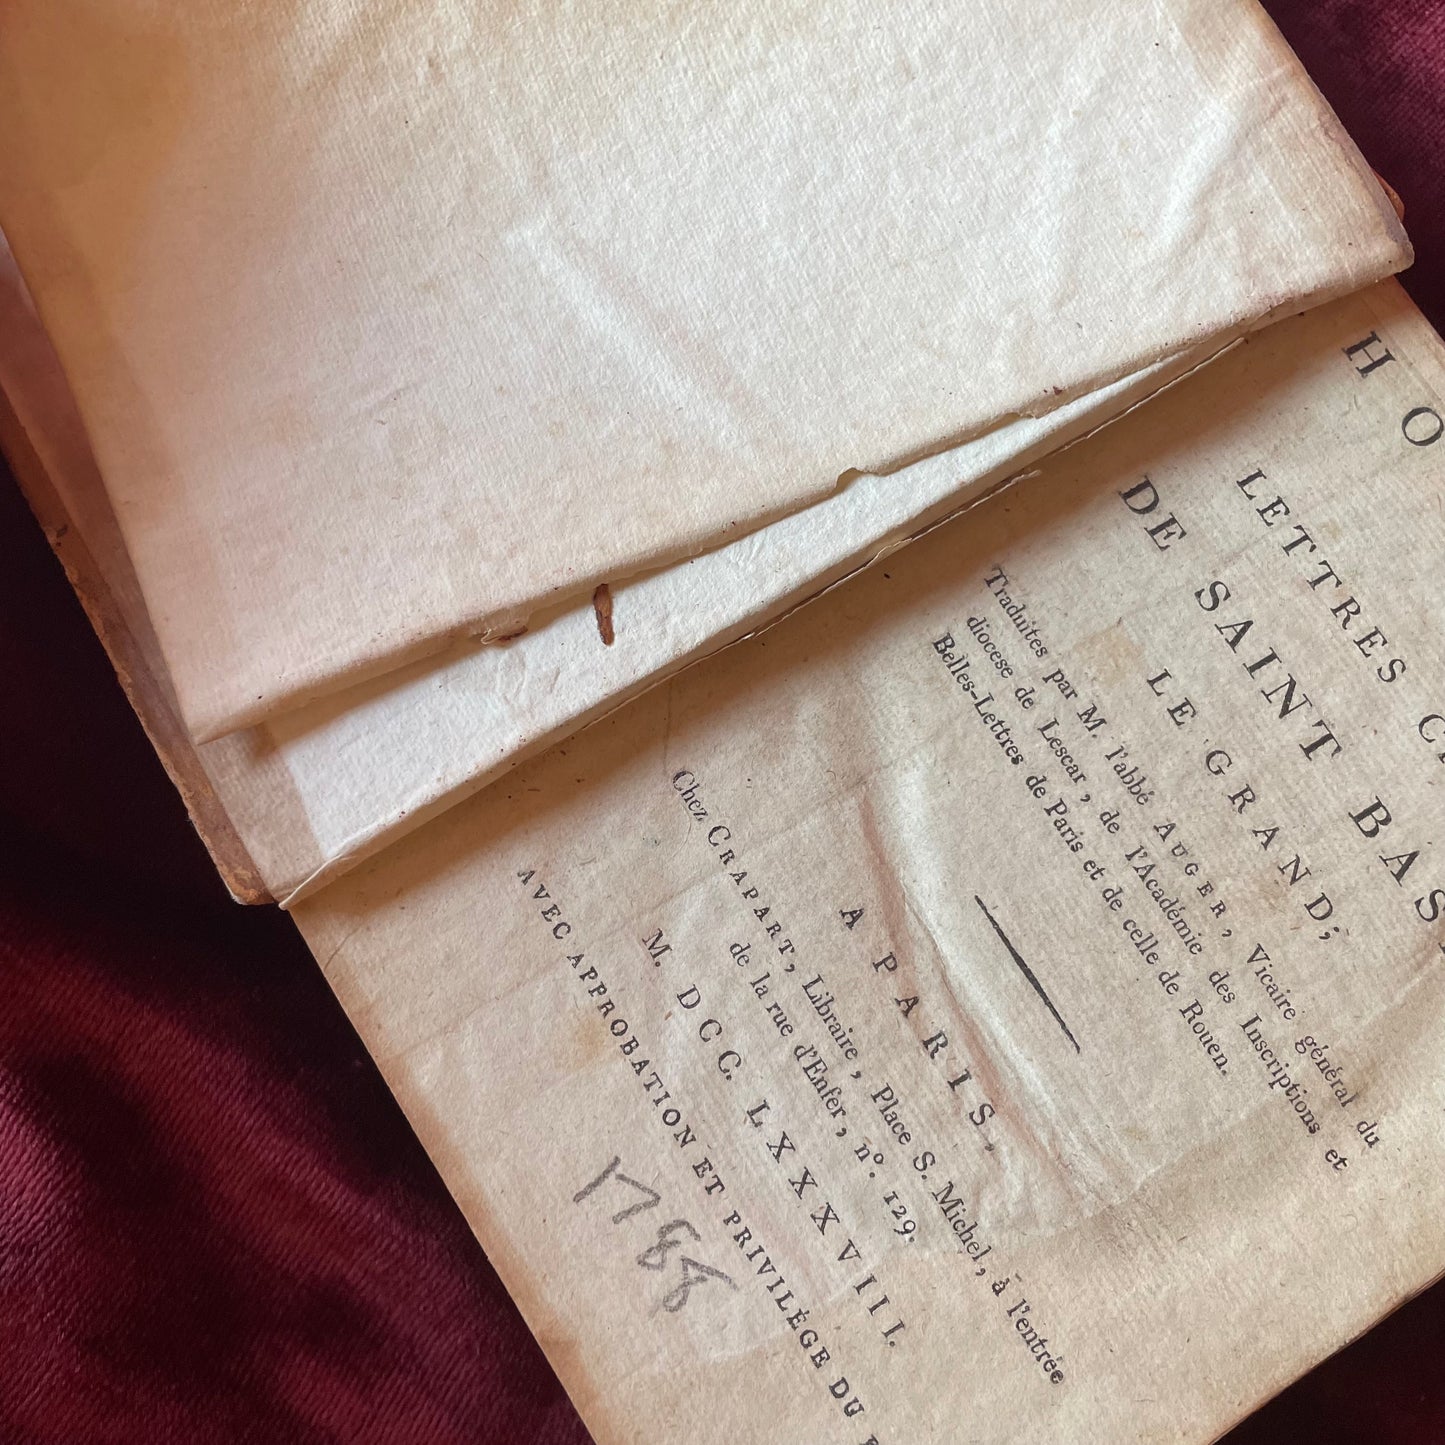 H O
LETTRES C
DE SAINT BAS
LE GRAND;
Traduites par M. l'abbé AUGER, Vicaire général du
diocese de Lescar, de l'Académie des Inscriptions et
Belles-Lettres de Paris et de celle de Rouen.
A PARIS,
Chez CRAPART, Libraire, Place S. Michel, à l'entrée
de la rue d'Enfer, n°. 129.
M. DCC. LXXXVIII.
AVEC APPROBATION ET PRIVILÉGE DU
1788